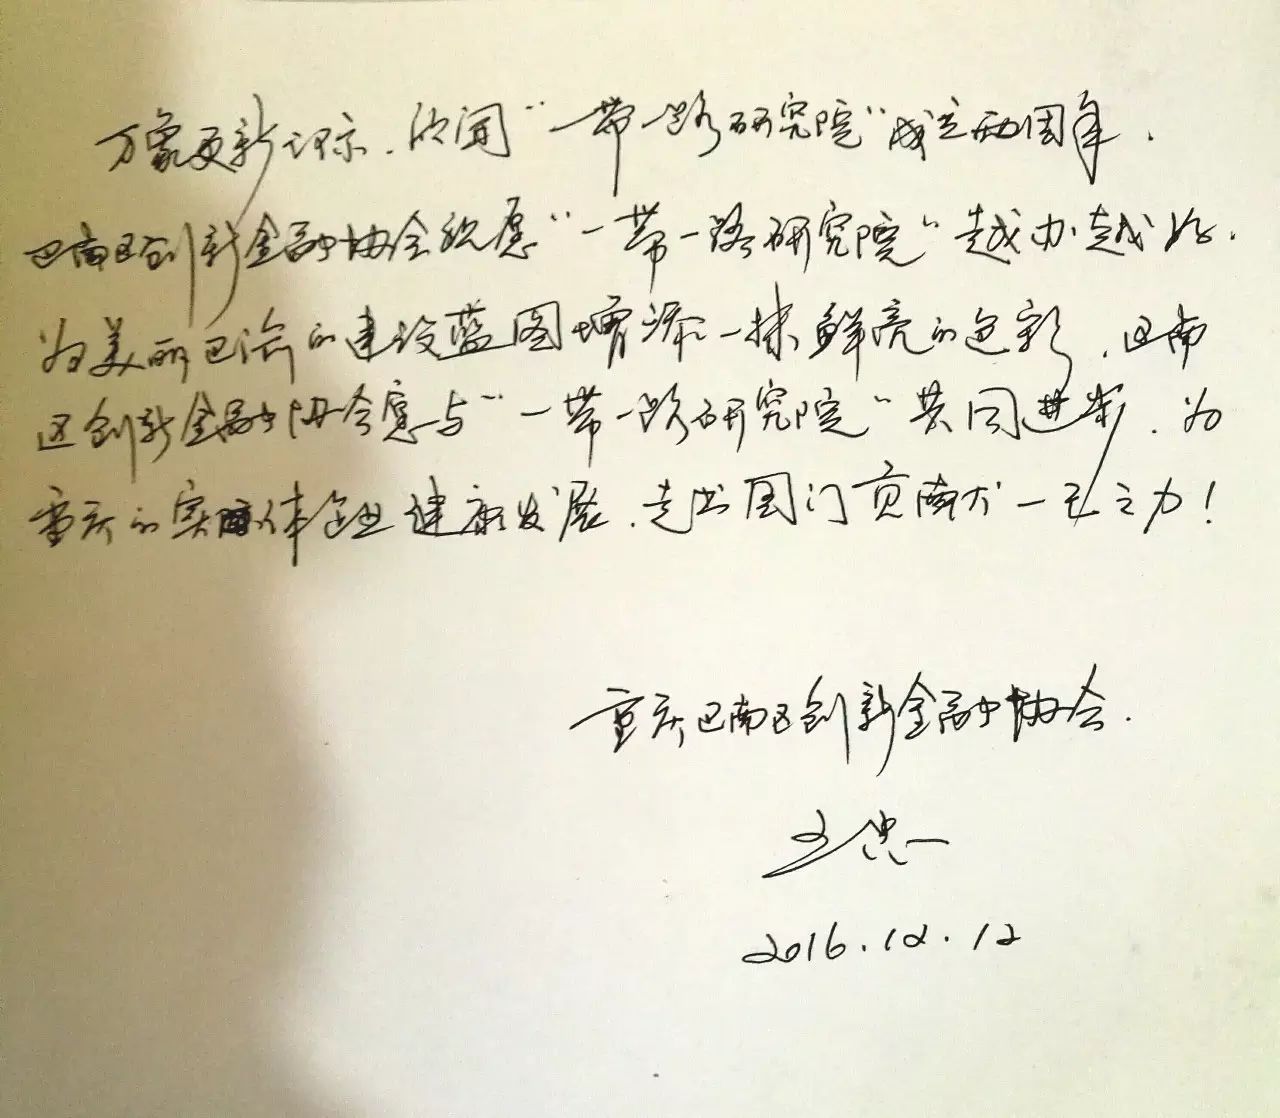 万象更新 欣闻“一带一路研究院”成立两周年.
巴南区创新金融协会祝愿“一带一路研究院”越办越好.
为美丽巴渝的建设蓝图增添一抹鲜亮的色彩,巴南
区创新金融协会愿与“一带一路研究院”共同进步,为
重庆的实体企业健康发展,走出国门贡献一己之力!
重庆巴南区创新金融协会.
2016.12.12